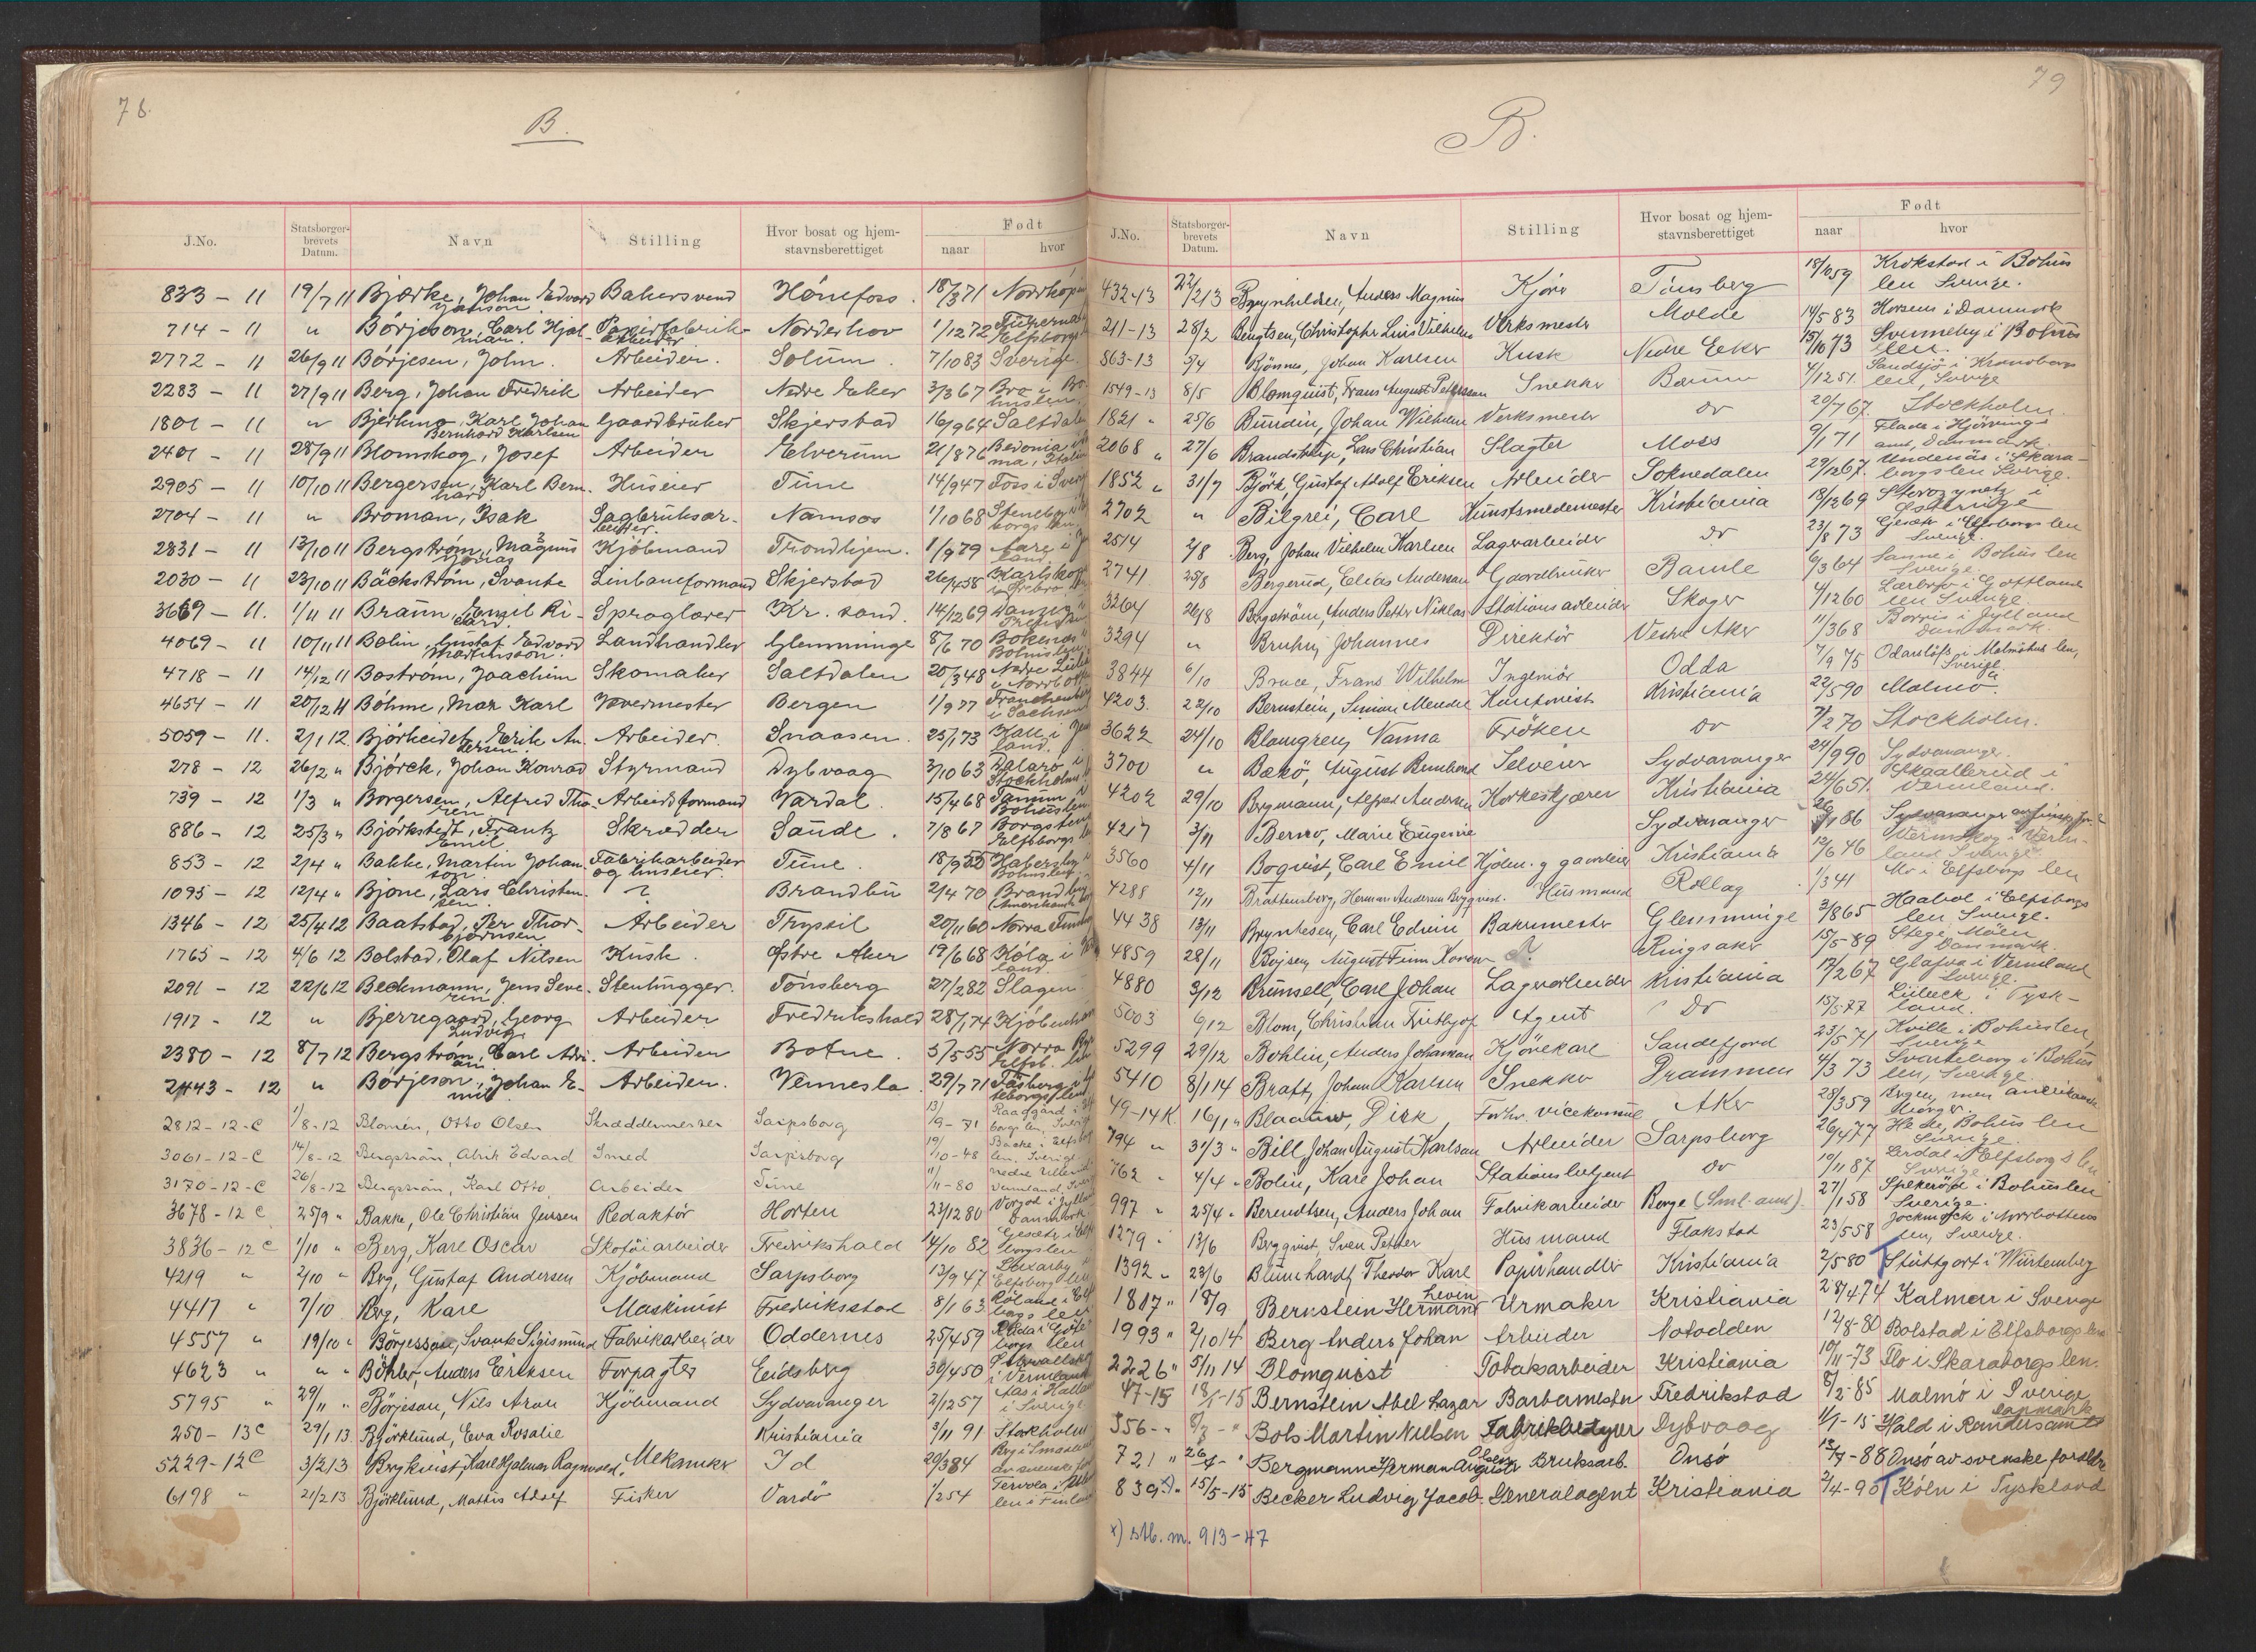 78.
B.
J.No. Statsborger-brevets Datum. Navn Stilling Hvor bosat og hjem-stavnsberettiget Født naar hvor
833 - 11 19/7 11 Bjærke, Johan Edvard Janson Bakersvend Hönefoss. 18/3 71 Norrköpin
714 - 11 " Börjeson, Carl Hjalmar Papirfabrikarbeider Norderhov 1/12 72 Elfsborgs
2772 - 11 26/9 11 Börjesen, John. Arbeider. Solum 7/10 83 Sverige
2283 - 11 27/9 11 Berg, Johan Fredrik Arbeider Nedre Eker 3/3 67 Bro i Bohuslen.
1801 - 11 " Bjerkmo, Karl Johan Bernhard Karlsen Gaardbruker Skjerstad 16/9 64 Saltdalen
2401 - 11 28/9 11 Blomskog, Josef Arbeider Elverum 21/8 76 Bedonia, Italien
2905 - 11 10/10 11 Bergersen, Karl Bernhard Huseier Tune 14/9 47 Foss i Sverig
2704 - 11 " Broman, Isak Sagbruksarbeider. Namsos 1/10 68
2831 - 11 13/10 11 Bergström, Magnus Jonas Kjöbmand Trondhjem. 1/9 79 Aare i
2030 - 11 23/10 11 Bäckström, Svante Linbaneformand Skjerstad 26/4 58 Karlskog
3669 - 11. 1/11 11 Braun, Emil Rikard Sproglærer Kr. sand. 14/12 69 Danzig
4069 - 11 10/11 11 Bolin, Gustaf Edvard Martinsson. Landhandler Glemminge 8/6 70 Bokenäs i Bohuslen
4718 - 11 14/12 11 Boström, Joachim Skomaker Saltdalen 20/3 48 Nedre
4654 - 11 20/12 11 Böhme, Max Karl Vævermester Bergen 1/9 77 i Sachsen
5059 - 11. 2/1 12 Björheidet, Erik Andersen. Arbeider. Snaasen. 25/1 73
278 - 12 26/2 " Björck, Johan Konrad Styrmand Dybvaag 3/10 63 Dalarö i Stockholms
739 - 12 1/3 " Borgersen, Alfred Thoren Arbeidsformand Vardal. 15/4 68 Tanum i Bohuslen
886 - 12 25/3 " Björkstedt, Frantz Emil Skrædder Sande. 7/8 67 Borgstena Elfsborgs
853 - 12 2/4 " Bakke, Martin Johanson Fabrikarbeider og huseier. Tune. 18/9 Bohuslen
1095 - 12 12/4 " Bjone, Lars Christensen ? Brandbu 2/4 70 Brandbu
1346 - 12 25/4 12 Baatstad, Per Thorbjörnsen Arbeider Trysil 20/11 60 Norra Finskog
1765 - 12 4/6 12 Bolstad, Olaf Nilsen Kusk. Østre Aker 19/6 68 Köla i
2091 - 12 22/6 12 Beckmann, Jens Severin Stenhugger. Tönsberg 27/2 82 Slagen
1917 - 12 " Bjerregaard, Georg Ludvig Arbeider Fredrikshald 28/1 74 Kjöbenhavn
2380 - 12 8/7 12 Bergström, Carl Adrian. Arbeider Botne. 5/5 55 Norra
2443 - 12 " Börjeson, Johan Emil Arbeider. Vennesla 29/7 71
2812-12-C 1/8-12 Blomén, Otto Olsen Skræddermester Sarpsborg 13/9-71
3061-12-C 14/8-12 Bergström, Alrik Edvard Smed Sarpsborg 19/10-48 Bäcke i Elfsborg len, Sverige
3170-12-C 26/8-12 Bergström, Karl Otto, Arbeider Tune 11/11-80 Nedre Ullerud, Vermland, Sverige
3678-12 C 25/9 " Bakke, Ole Christian Jensen Redaktör Horten 23/12 80 Vorgod i Jylland Danmark
3836-12 C 1/10 " Berg, Karl Oscar Skotöiarbeider Fredrikshald 14/10 82 Gesäter i Elfsborgslen
4219 " 2/10 " Berg, Gustaf Andersen Kjöbmand Sarpsborg 13/9 47 Elfsborg len
4417 " 7/10 Berg, Karl Maskinist Fredriksstad 8/1 63
4557 " 19/10 " Börjesson, Svante Sigismund Fabrikarbeider Oddernes 25/4 59
4623 " " " Böhler, Anders Eriksen Forpagter Eidsberg 30/4 50 i Vermland
5795 " 29/11 " Börjeson, Nils Aron Kjöbmand Sydvaranger 2/12 57 Aas i Halland i Sverige
250 - 13 C 29/1 13 Björklund, Eva Rosalie Kristiania 3/11 91 Stockholm
5229-12 C 3/2 13 Bergkvist, Karl Hjalmar Ragnvald. Mekaniker Id 20/3 84 Berg i Smaalen
6198 " 21/2 13 Björklund, Mattis Adolf Fisker Vardö 1/2 54 Tervola i len i Finland
79
B.
J.No. Statsborger-brevets Datum. Navn Stilling Hvor bosat og hjem-stavnsberettiget Født naar hvor
4324 13 22/2 13 Brynhildsen, Anders Magnus Kjörer Tönsberg 18/10 59 Krokstad i Bohus len Sverige.
211-13 28/2 Bengtsen, Christopher Luis Vilhelm Verksmester Molde 14/5 83 Horsens i Danmark
863-13 5/4 Bjönnes, Johan Karlsen Kusk Nedre Eker 15/10 73 Svenneby i Bohuslen.
1549-13 8/5 Blomquist, Frans August Pettersson Snekker Bærum 4/12 51. Sandsjö i Kronobergs len, Sverige
1821 " 25/6 Bundin, Johan Wilhelm Verksmester do 20/7 67. Stockholm.
2068 " 27/6 Brandstrup, Lars Christian Slagter Moss 9/1 71 Flade i Hjörrings amt, Danmark.
1852 " 31/7 Björk, Gustaf Adolf Eriksen Arbeider Soknedalen 29/12 67. Undenäs i Skaraborgslen Sverige.
2702 " Bilgrei, Carl Kunstsmedemester Kristiania 18/12 69 Østerrige
2514 2/8 Berg, Johan Vilhelm Karlsen Lagerarbeider do 23/8 73 Gesäter i Elfsborgs len Sverige.
2741 25/8 Bergerud, Elias Andersen Gaardbruker Bamle 6/3 64 Sanne i Bohus len Sverige.
3264 26/8 Bergström, Anders Petter Niklas Stationsarbeider Skoger 4/12 60 Lærbro i Gottland len Sverige.
3294 " Bruhn, Johannes Direktör Vestre Aker 11/3 68 Borris i Jylland Danmark
3844 6/10 Bruce, Frans Wilhelm Ingeniör Odda 7/9 75 Odarslöf i Malmöhus len, Sverige.
4203. 22/10 Bernstein, Simon Mendel Kontorist Kristiania 22/5 90 Malmö.
3622 24/10 Blomgren, Nanna Fröken do 7/2 70 Stockholm.
3700 " Bækö, August Bernhard Selveier Sydvaranger 24/9 90 Sydvaranger.
4202 29/10 Bergmann, Alfred Andersen Korkeskjærer Kristiania 24/6 51. Skaallerud i Vermland.
4217 3/11 Berno, Marie Eugenie Sydvaranger 26/11 86 Sydvaranger
3560 4/11 Boquist, Carl Emil Kjöbm. g gaardeier Kristiania 12/6 46 Værmskog i Vermland Sverige.
4288 12/11 Brattenberg, Herman Andersen Bergqvist. Husmand Rollag 1/3 41 Mo i Elfsborgs len
4438 13/11 Bryntesen, Carl Edvin Bakermester Glemminge 3/8 65 Haabol i Elfsborgs len Sverige.
4859 28/11 Bojsen, August Finn Ringsaker 15/5 89 Stege, Möen Danmark.
4880 3/12 Brunsell, Carl Johan Lagerarbeider Kristiania 17/2 67 Glafva i Vermland Sverige.
5003 6/12 Blom, Christian Fridtjof Agent Do 15/5 77 Lübeck i Tyskland.
5299 29/12 Bohlin, Anders Johansson Kjörekarl Sandefjord 23/5 71 Kville i Bohuslen, Sverige
5410 8/1 14 Bratt, Johan Karlsen Snekker Drammen 4/3 73 Svarteborg i Bohus len, Sverige.
49-14 K. 16/1 " Blaauw, Dirk Forhv. vicekonsul Aker 28/3 59 Bergen, men amerikansk borger.
794 " 31/3 " Bill, Johan August Karlsson Arbeider Sarpsborg 26/4 77 Bohus len Sverige.
762 " 4/4 " Bolin, Karl Johan Stationsbetjent do 10/11 87 Lerdal i Elfsborgs len Sverige.
997 " 25/4 " Berendtsen, Anders Johan Fabrikarbeider Borge (Sml. amt). 27/1 58 Spekeröd i Bohuslen Sverige.
1279 " 13/6 Bergqvist, Sven Petter Husmand Flakstad 23/5 58 Jockmock i Norrbottens len, Sverige.
1392 " 23/6 Blumhardt, Theodor Karl Papirhandler Kristiania 2/5 80 Stuttgart i Würtemberg
1817 " 18/9 Bernstein Hermann Levin Urmaker Kristiania 28/4 74 Kalmar i Sverige
1993 " 2/10 14 Berg Anders Johan Arbeider Notodden 12/8-80 Bolstad i Elfsborgs len
2226 " 5/11 14 Blomquist Tobaksarbeider Kristiania 10/11-73 Flo i Skaraborgs len.
47-15 18/1-15 Bernstein Abel Lazar Barbermester Fredrikstad 8/2-85 Malmö i Sverige
356 - " Bols Martin Nielsen Fabrikbestyrer Dybvaag Hald i Randers amt Danmark
721 " 26/4 - " Bergmann Herman August Olsen Bruksarb. Onsö 13/7-88 Onsö av svenske foreldre
839 x) " 15/5-15 Becker Ludvig Jacob. Generalagent Kristiania 2/4-90 Köln i Tyskland
x) stb. m. 913-47